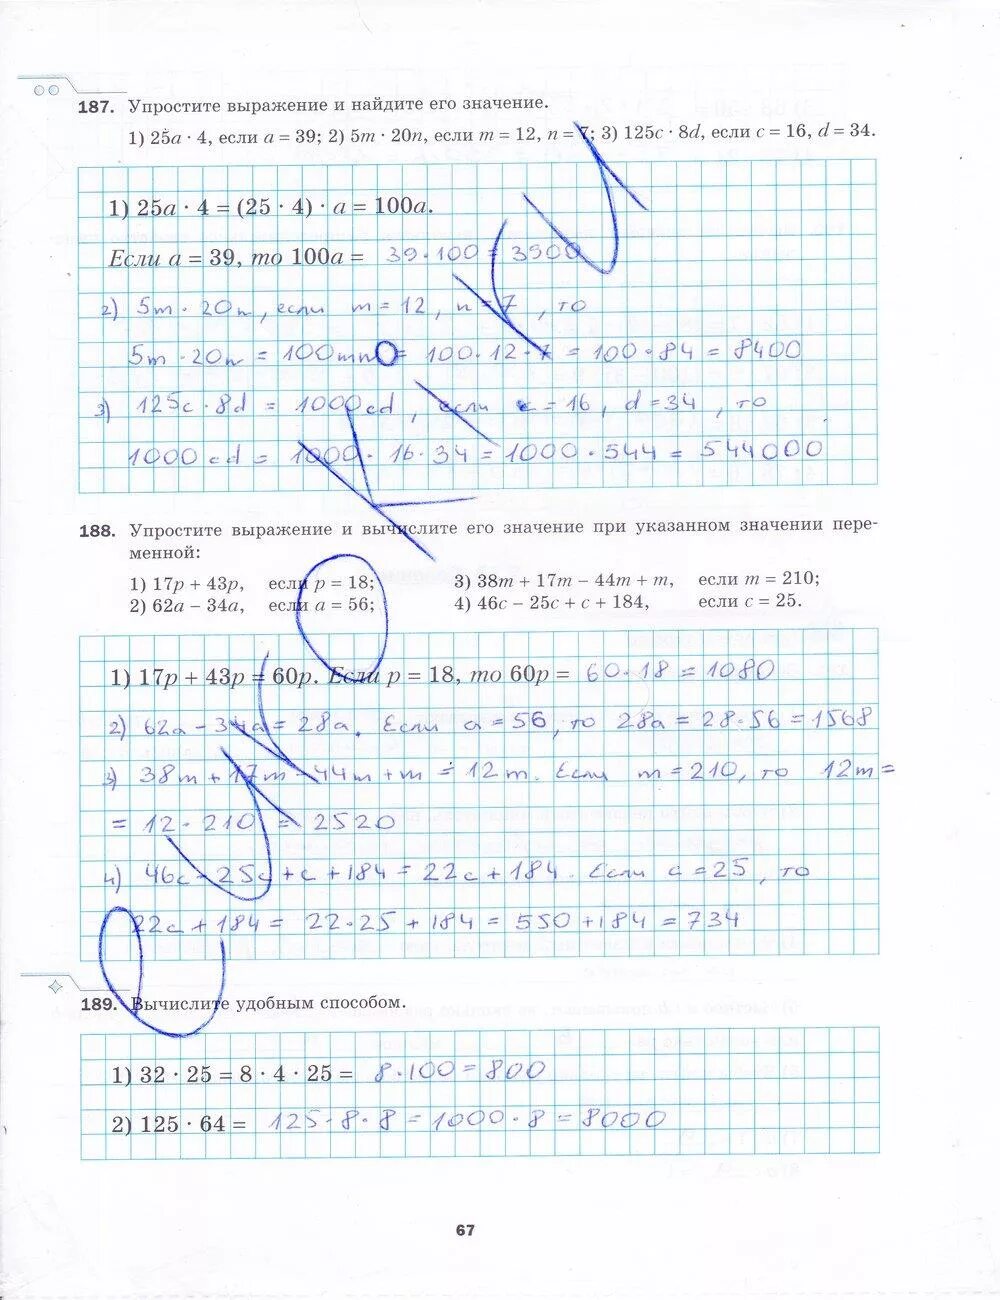 187. Упростите выражение и найдите его значение.
1) 25a · 4, если a = 39; 2) 5m · 20n, если m = 12, n = 7; 3) 125c · 8d, если c = 16, d = 34.
1) 25a · 4 = (25 · 4) · a = 100a.
Если a = 39, то 100a = 39 · 100 = 3900
2) 5m · 20n, если m = 12, n = 7, то
5m · 20n = 100mn = 100 · 12 · 7 = 100 · 84 = 8400
3) 125c · 8d = 1000cd, если c = 16, d = 34, то
1000cd = 1000 · 16 · 34 = 1000 · 544 = 544000
188. Упростите выражение и вычислите его значение при указанном значении пере-
менной:
1) 17p + 43p, если p = 18; 3) 38m + 17m − 44m + m, если m = 210;
2) 62a − 34a, если a = 56; 4) 46c − 25c + c + 184, если c = 25.
1) 17p + 43p = 60p. Если p = 18, то 60p = 60 · 18 = 1080
2) 62a − 34a = 28a. Если a = 56, то 28a = 28 · 56 = 1568
3) 38m + 17m − 44m + m = 12m. Если m = 210, то 12m =
= 12 · 210 = 2520
4) 46c − 25c + c + 184 = 22c + 184. Если c = 25, то
22c + 184 = 22 · 25 + 184 = 550 + 184 = 734
189. Вычислите удобным способом.
1) 32 · 25 = 8 · 4 · 25 = 8 · 100 = 800
2) 125 · 64 = 125 · 8 · 8 = 1000 · 8 = 8000
67